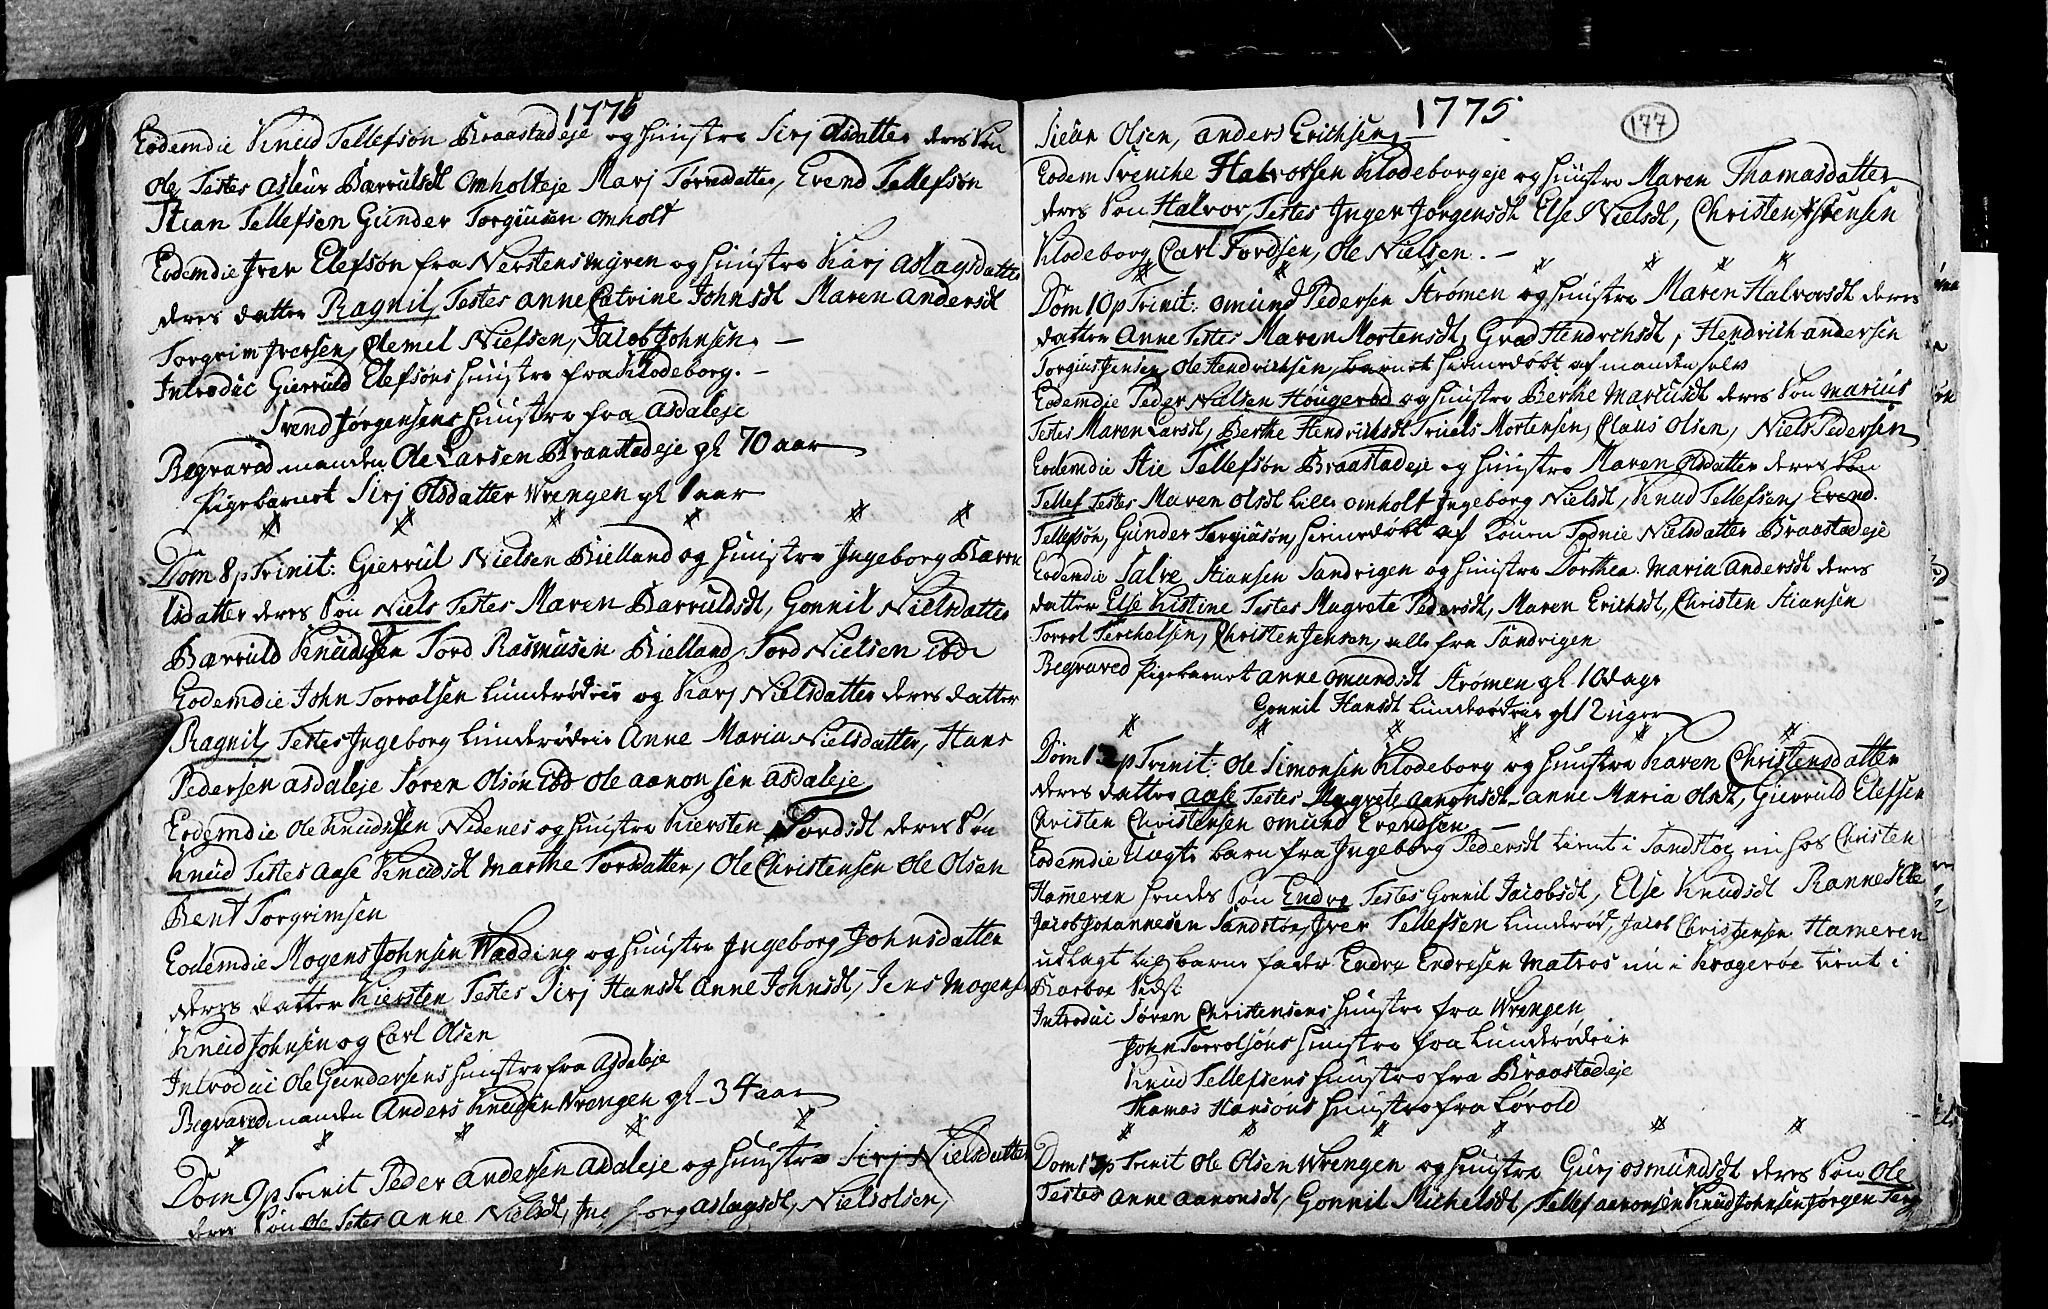 1775
Eodemdie Knud Tellefsøn Braastadeje og Hustre Sirj Olsdatter deres Søn
Ole Testes Asleur Barrulsdt Omholteje Marj Torrsdatter, Evend Tellefsøn
Stian Tellefsen Gunder Torgiusen Omholt
Eodemdie Iver Elefsøn fra Nerstensmyren og Hustre Karj Aslagsdatter
deres datter Ragnil Testes Anne Catrine Johnsdt Maren Andersdt
Torgrim Iversen, Olemel Nielsen, Jacob Johnsen. —
Introduc Gierruld Elefsøns Hustre fra Klodeborg. —
Svend Jørgensens Hustre fra Asdaleje
Begraved manden Ole Larsen Braastadeje gl 70 aar
Pigebarnet Sirj Olsdatter Wrengen gl 1 aar
Dom 8 p Trinit: Gierrul Nielsen Bielland og Hustre Ingeborg Barru
lsdatter deres Søn Niels Testes Maren Barruldsdt, Gonnil Nielsdatter
Barruld Knudsen Tord Rasmusen Bielland, Tord Nielsen ibd
Eodemdie John Torrolsen Lunderødeie og Karj Nielsdatter deres datter
Ragnil, Testes Ingeborg Lunderødeie Anne Maria Nielsdatter, Hans
Pedersen Asdaleje Søren Olsøn ibd Ole Aanonsen Asdaleje
Eodemdie Ole Knudsen Nedenes og Hustre Kiersten Tordsdt deres Søn
Knud Testes Aase Knudsdt Marthe Torsdatter, Ole Christensen Ole Olsen
Bent Torgrimsen
Eodemdie Mogens Johnsen Wadding og Hustre Ingeborg Johnsdatter
deres datter Kiersten Testes Sirj Hansdt Anne Johnsdt, Jens Mogens
Knud Johnsen og Carl Olsen
Introduc Ole Gundersens Hustre fra Asdaleje
Begraved manden Anders Knudsen Wrengen gl 34 aar
Dom 9 p Trinit Peder Andersen Asdaleje og Hustre Sirj Nielsdatter
deres Søn Ole Testes Anne Nielsdt, Ingeborg Aslagsdt, Niels Olsen,
1775
177
Siur Olsen, Anders Erichsen
Eodem Svenike Halvorsen Klodeborgeje og Hustre Maren Thomasdatter
deres Søn Halvor, Testes Inger Jørgensdt Else Nielsdt, Christen Jensen
Klodeborg Carl Tordsen, Ole Nielsen. —
Dom 10 p Trinit: Omund Pedersen Strømen og Hustre Maren Halvorsdt deres
datter Anne Testes Maren Mortensdt, Groe Hendrichsdt, Hendrich Andersen
Torgius Jensen, Ole Hendrichsen, barnet hiemedøbt af manden selv
Eodemdie Peder Nielsen Hougerød og Hustre Berthe Marcusdt deres Søn Marius
Testes Maren Larsdt, Berthe Hendrichsdt Truels Mortensen, Claus Olsen, Niels Pedersen
Eodemdie Stie Tellefsøn Braastadeje og Hustre Maren Olsdatter deres Søn
Tellef Testes Maren Olsdt Lille Omholt Ingeborg Nielsdt, Knud Tellefsen, Evend
Tellefsøn, Gunder Torgiusøn, hiemedøbt af Konen Sidnie Nielsdatter Braastadeje
Eodemdie Salve Stiansen Sandvigen og Hustre Dorthea Maria Andersdt deres
datter Else Kistine Testes Magrete Pedersdt, Maren Erichsdt, Christen Stiansen
Torrol Terchelsen, Christen Jensen, alle fra Sandvigen
Begraved Pigebarnet Anne Omundsdt Strømen gl 10 dage
Gonnil Hansdt Lunderødeie gl 12 uger
Dom 12 p Trinit: Ole Simonsen Klodeborg og Hustre Karen Christensdatter
deres datter Aase Testes Magrete Aanonsdt Anne Maria Olsdt, Gierruld Elefsen
Christen Christensen Omund Evendsen —
Eodemdie Uægte barn fra Ingeborg Pedersdt tient i Sandstøe nu hos Christen
Hameren hendes Søn Endre Testes Gonnil Jacobsdt, Else Knudsdt Rannekle
Jacob Johannesen Sandstøe, Iver Tellefsen Lunderød, Jacob Christensen Hameren
udlagt til barne fader Endre Endresen Matros nu i Kragerøe tient i
Barboe Sidst
Introduc Søren Christensens Hustre fra Wrengen
John Torrolsøns Hustre fra Lunderødeie
Knud Tellefsens Hustre fra Braastadeje
Thomas Hansøns Hustre fra Løvold
Dom 13 p Trinit Ole Olsen Wrengen og Hustre Gurj Osmundsdt deres Søn Ole
Testes Anne Aanonsdt, Gonnil Michelsdt, Tellef Aanonsen Knud Johnsen Jørgen